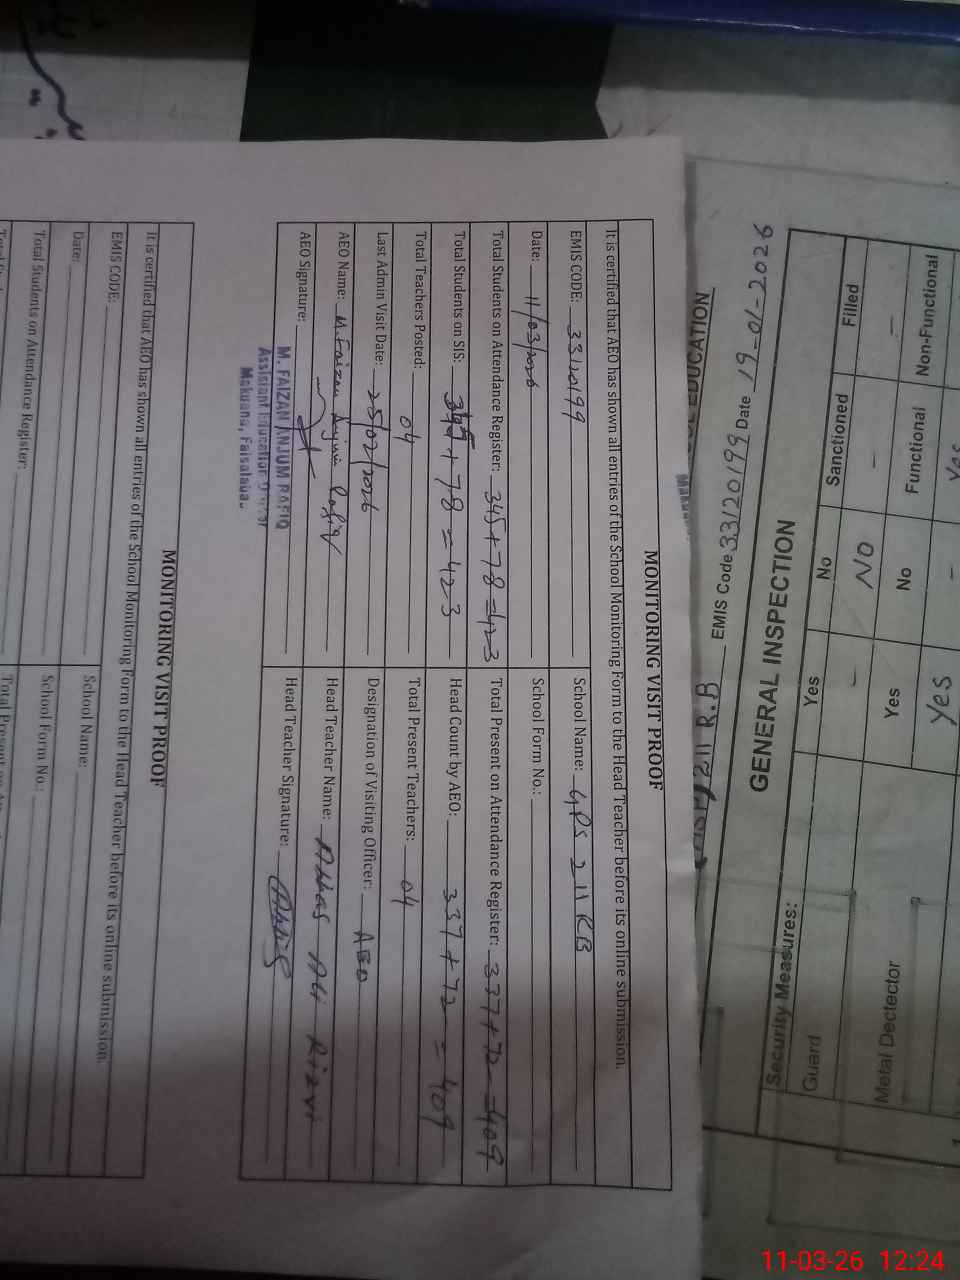 MONITORING VISIT PROOF
It is certified that AEO has shown all entries of the School Monitoring Form to the Head Teacher before its online submission.
EMIS CODE: 33120199 School Name: GPS 211 RB
Date: 11/03/2026 School Form No.:
Total Students on Attendance Register: 345+78=423 Total Present on Attendance Register: 337+72=409
Total Students on SIS: 345+78=423 Head Count by AEO: 337+72=409
Total Teachers Posted: 04 Total Present Teachers: 04
Last Admin Visit Date: 25/02/2026 Designation of Visiting Officer: AEO
AEO Name: M. Faizan Anjum Rafiq Head Teacher Name: Abbas Ali Rizvi
AEO Signature: Head Teacher Signature:
M. FAIZAN ANJUM RAFIQ
Assistant Education Officer
Makuana, Faisalabad
MONITORING VISIT PROOF
It is certified that AEO has shown all entries of the School Monitoring Form to the Head Teacher before its online submission.
EMIS CODE:
Date: School Name:
Total Students on Attendance Register: School Form No.:
EDUCATION
211 R.B EMIS Code 33120199 Date 19-01-2026
GENERAL INSPECTION
Security Measures:
Yes No Sanctioned Filled
Guard - NO - -
Yes No Functional Non-Functional
Metal Dectector Yes - Yes
11-03-26 12:24